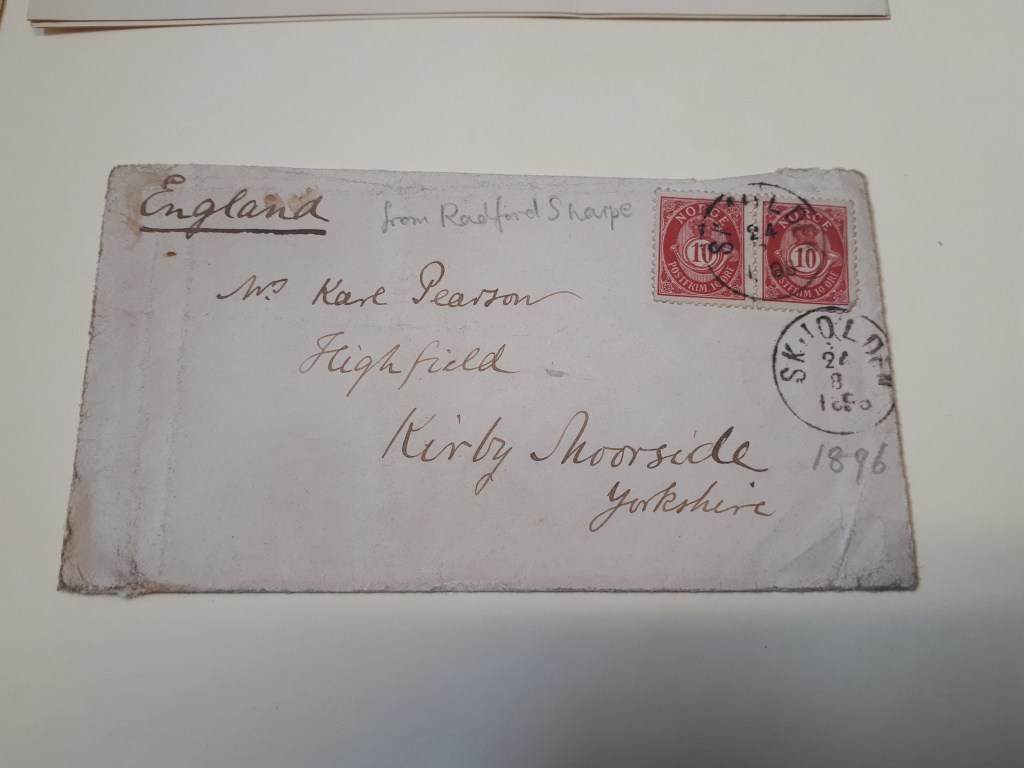 England
from Radford Sharpe
NORGE NORGE
10 10
POSTFRIM 10 ØRE POSTFRIM 10 ØRE
Mrs Karl Pearson
Highfield
Kirby Moorside
Yorkshire
SKJOLDEN
8
1896